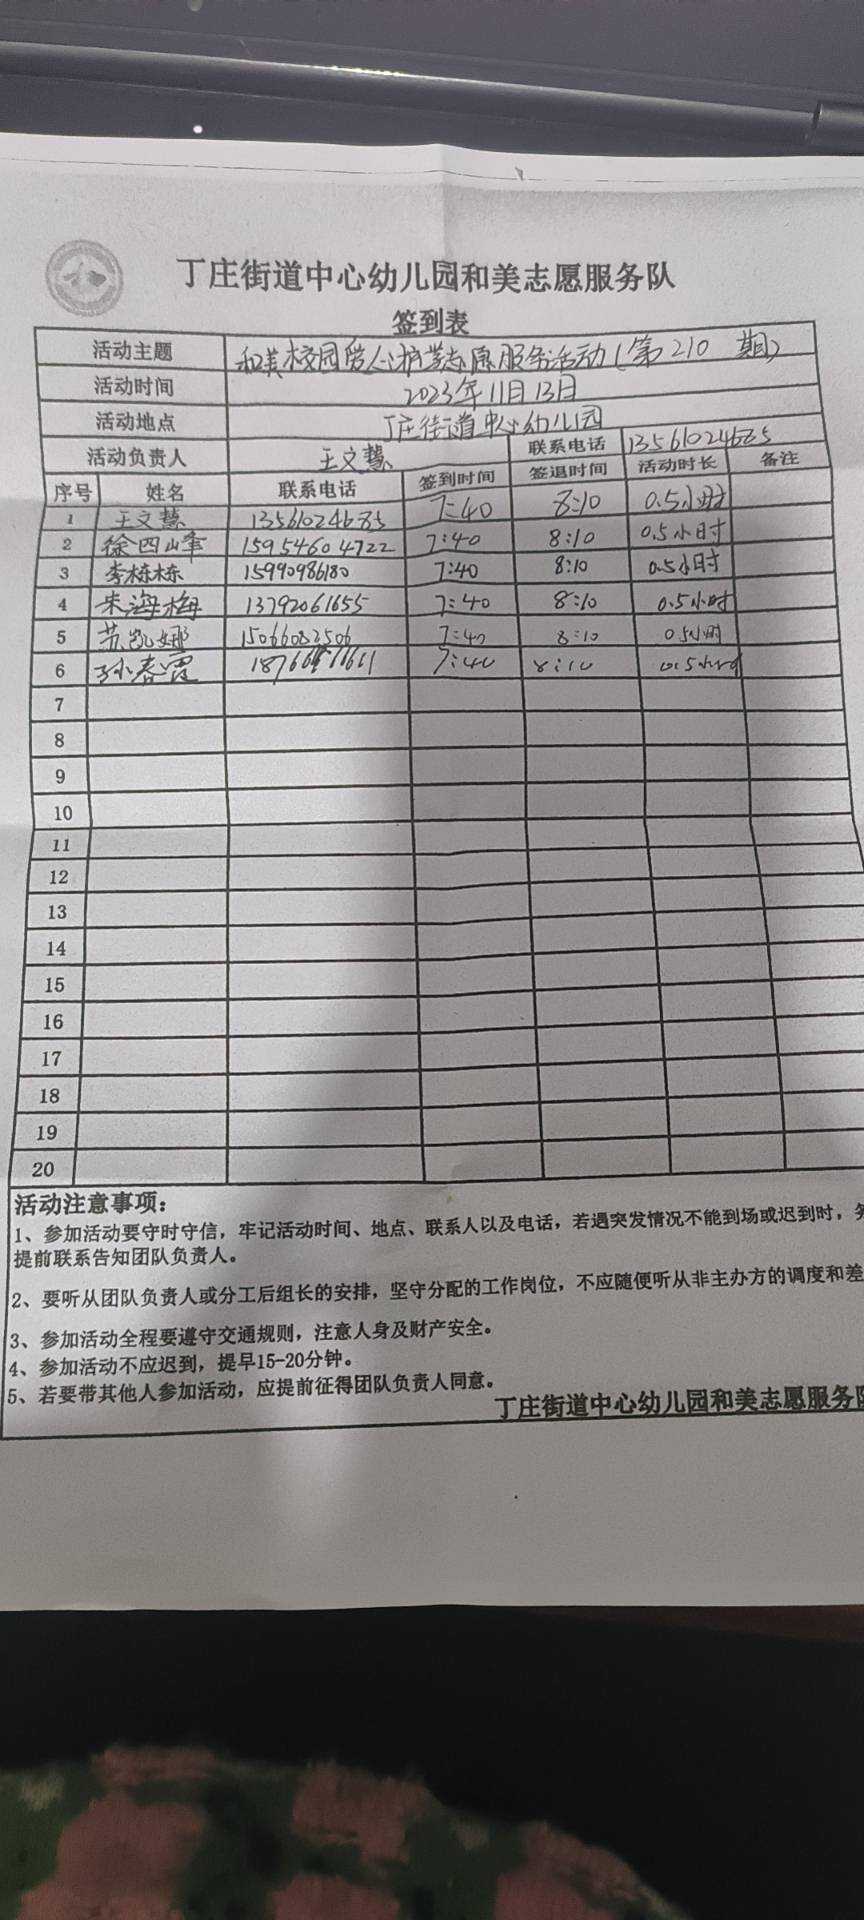 丁庄街道中心幼儿园和美志愿服务队
签到表
活动主题 和美校园爱心护苗志愿服务活动(第210 期)
活动时间 2023年11月13日
活动地点 丁庄街道中心幼儿园
活动负责人 王文慧 联系电话 13561024685
序号 姓名 联系电话 签到时间 签退时间 活动时长 备注
1 王文慧 13561024685 7:40 8:10 0.5小时
2 徐四峰 15954604722 7:40 8:10 0.5小时
3 李栋栋 15990986180 7:40 8:10 0.5小时
4 朱海梅 13792061655 7:40 8:10 0.5小时
5 苏凯娜 15066082506 7:40 8:10 0.5小时
6 孙春霞 7:40 8:10 0.5小时
7
8
9
10
11
12
13
14
15
16
17
18
19
20
活动注意事项:
1、参加活动要守时守信，牢记活动时间、地点、联系人以及电话，若遇突发情况不能到场或迟到时，务
提前联系告知团队负责人。
2、要听从团队负责人或分工后组长的安排，坚守分配的工作岗位，不应随便听从非主办方的调度和差
3、参加活动全程要遵守交通规则，注意人身及财产安全。
4、参加活动不应迟到，提早15-20分钟。
5、若要带其他人参加活动，应提前征得团队负责人同意。
丁庄街道中心幼儿园和美志愿服务队